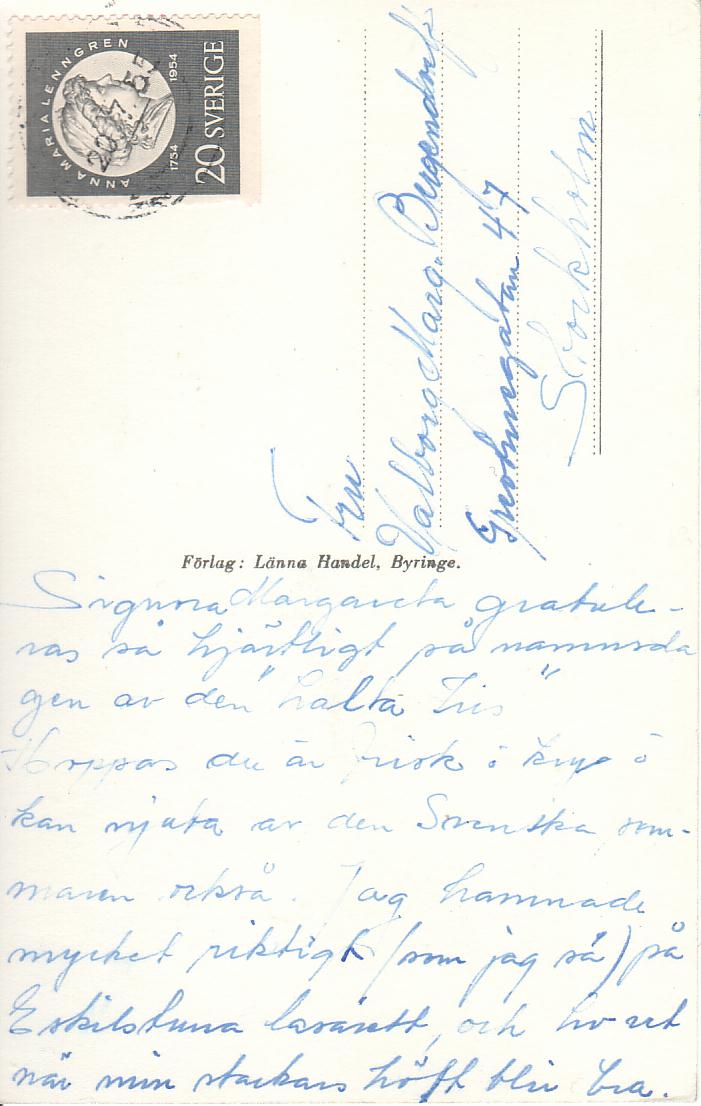 ANNA MARIA LENNGREN
1754 1954
20 SVERIGE
Fru
Valborg Marg. Bergendorff
Grevturegatan 47
Stockholm
Förlag: Länna Handel, Byringe.
Signora Margareta gratule-
ras så hjärtligt på namnsda
gen av den "halta Iris"
Hoppas du är frisk o kry o
kan njuta av den Svenska som-
maren också. Jag hamnade
mycket riktigt (som jag sa) på
Eskilstuna lasarett, och hv vet
när min stackars höft blir bra.